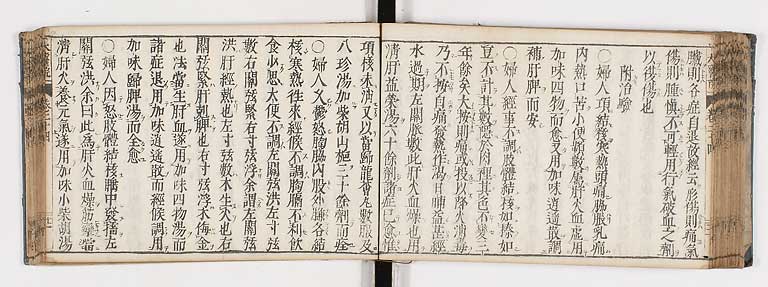 臟則各症自退故經云形傷則痛氣
傷則腫愼不可輕用行氣破血之劑
以復傷也
附治驗
〇婦人項結核寒熱頭痛脇脹乳痛
內熱口苦小便頻數屬肝火血虛用
加味四物而愈又用加味逍遙散調
補肝脾而安
〇婦人經事不調肢體結核如榛如
豆不計其數隱於肉裡其色不變三
年餘矣大按則痛或投以降火消毒
乃不按自痛發熱作渴日晡益甚經
水過期左關脈數此肝火血燥也用
清肝益榮湯六十餘劑諸症已愈惟
項核未消又以當歸龍薈丸數服及
八珍湯加柴胡山梔三十餘劑而痊
〇婦人又鬱怒胸膈內股外臁各結
核寒熱往來經候不調胸膈不利飲
食少思大便不調左關弦洪左寸弦
數右關弦緊右寸弦浮余謂左關弦
洪肝經熱也左寸弦數木生火也右
關弦緊肝剋脾也右寸弦浮木侮金
也法當生肝血遂用加味四物湯而
諸症退用加味逍遙散而經候調用
加味歸脾湯而全愈
〇婦人因怒肢體結核中發搐左
關弦洪余曰此為肝火血燥筋攣當
清肝火養元氣遂用加味小柴胡湯